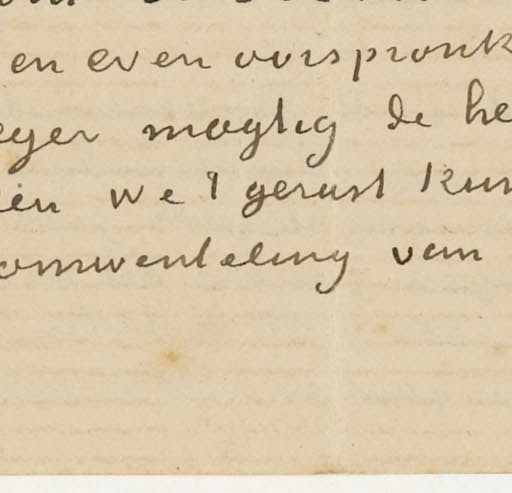 en even oorspronk
eger moglig de he
ien wel gerust kun
omwenteling van